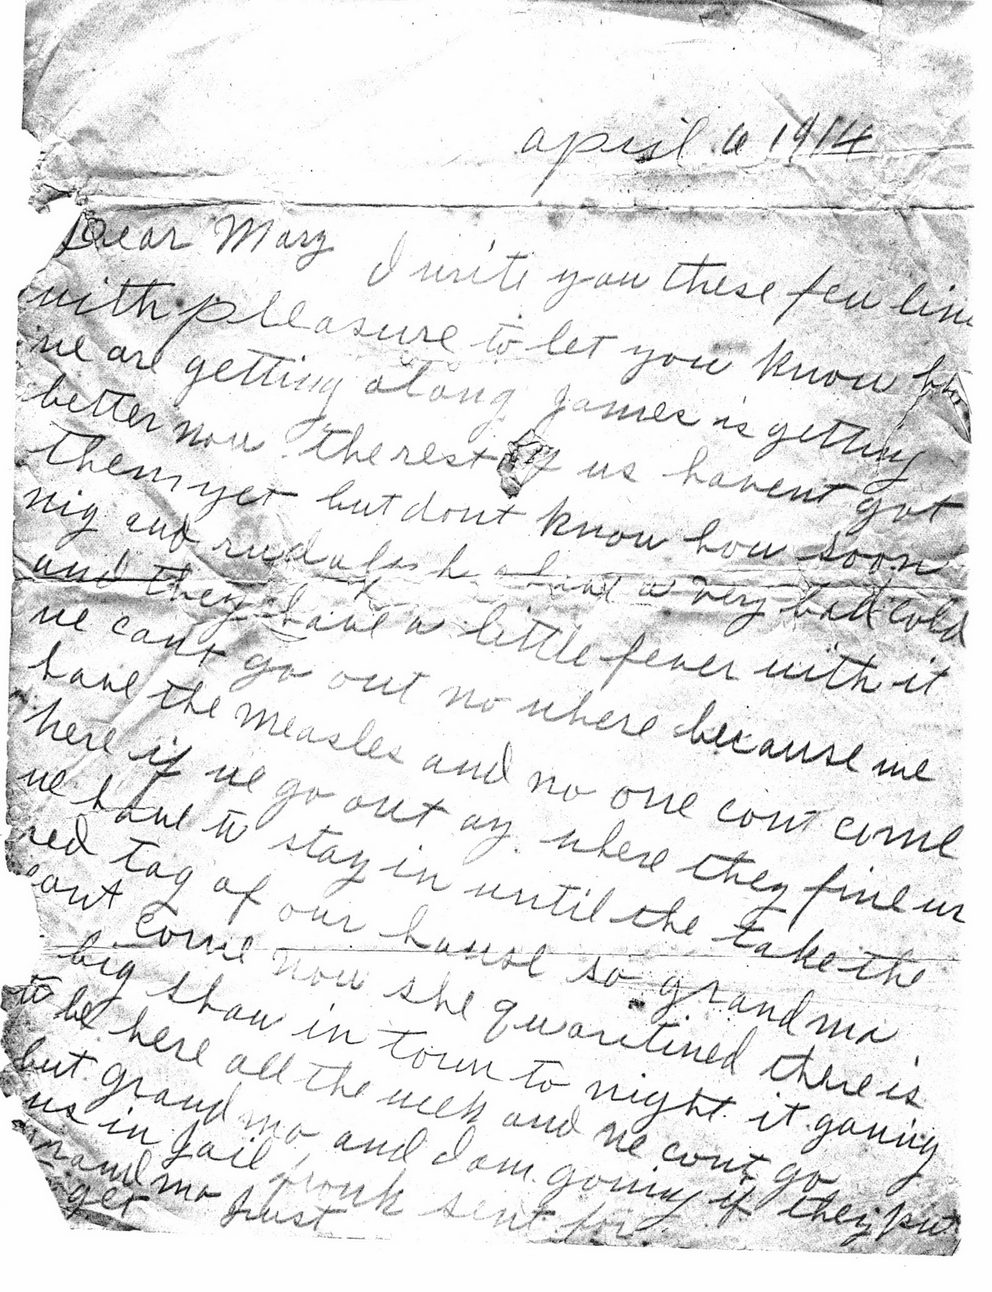 april 6 1914
Dear Mary I write you these few line
with pleasure to let you know how
we are getting along James is getting
better now the rest of us havent got
them yet but dont know how soon
nig and rudalph had a very bad cold
and they have a little fever with it
we cant go out no where because we
have the measles and no one cont come
here if we go out ay where they fine us
we have to stay in until the take the
red tag of our house so grandma
cant come now she quaritined there is
big show in town to night it goning
to be here all the week and we cont go
but grand ma and I am going if they put
us in jail sent for
grandma
get Just